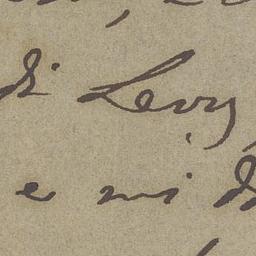 di Levy
e mi